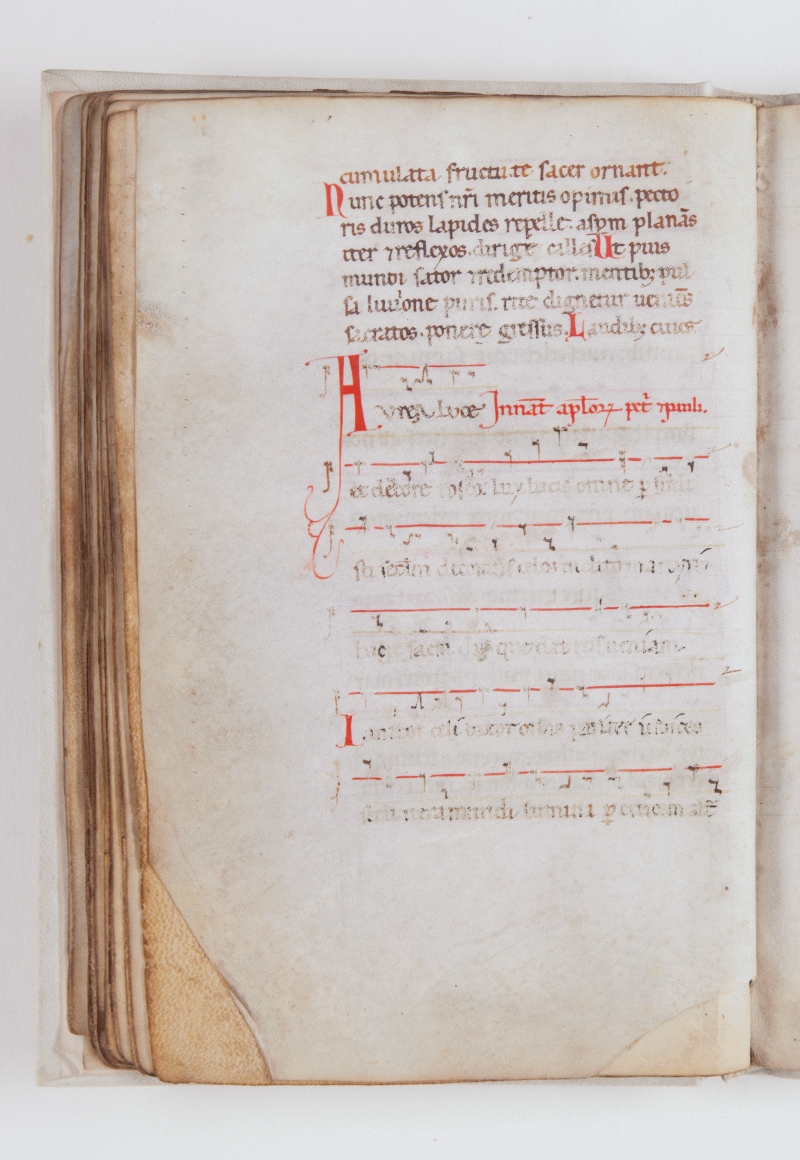 cumulata fructu te sacer ornant.
Nunc potens nr̃i meritis opimis. pecto
ris duros lapides repelle. asp̃m planãs
iter ⁊reflexos. dirige calles Ut pius
mundi sator ⁊redemptor. mentib; pul
sa luuione puris. rite dignetur ueniẽs
sacratos. ponere gressus. Laudib; ciues
Aurea luce In nat̃ apl̃oꝝ pet̃ ⁊pauli.
et decore roseo. lux lucis omne p̱
luce sacra diẽ que dat reis ueniam.
Ianitor celi doctor orbis pariter iudices
uera mundi lumina p̱ crucem